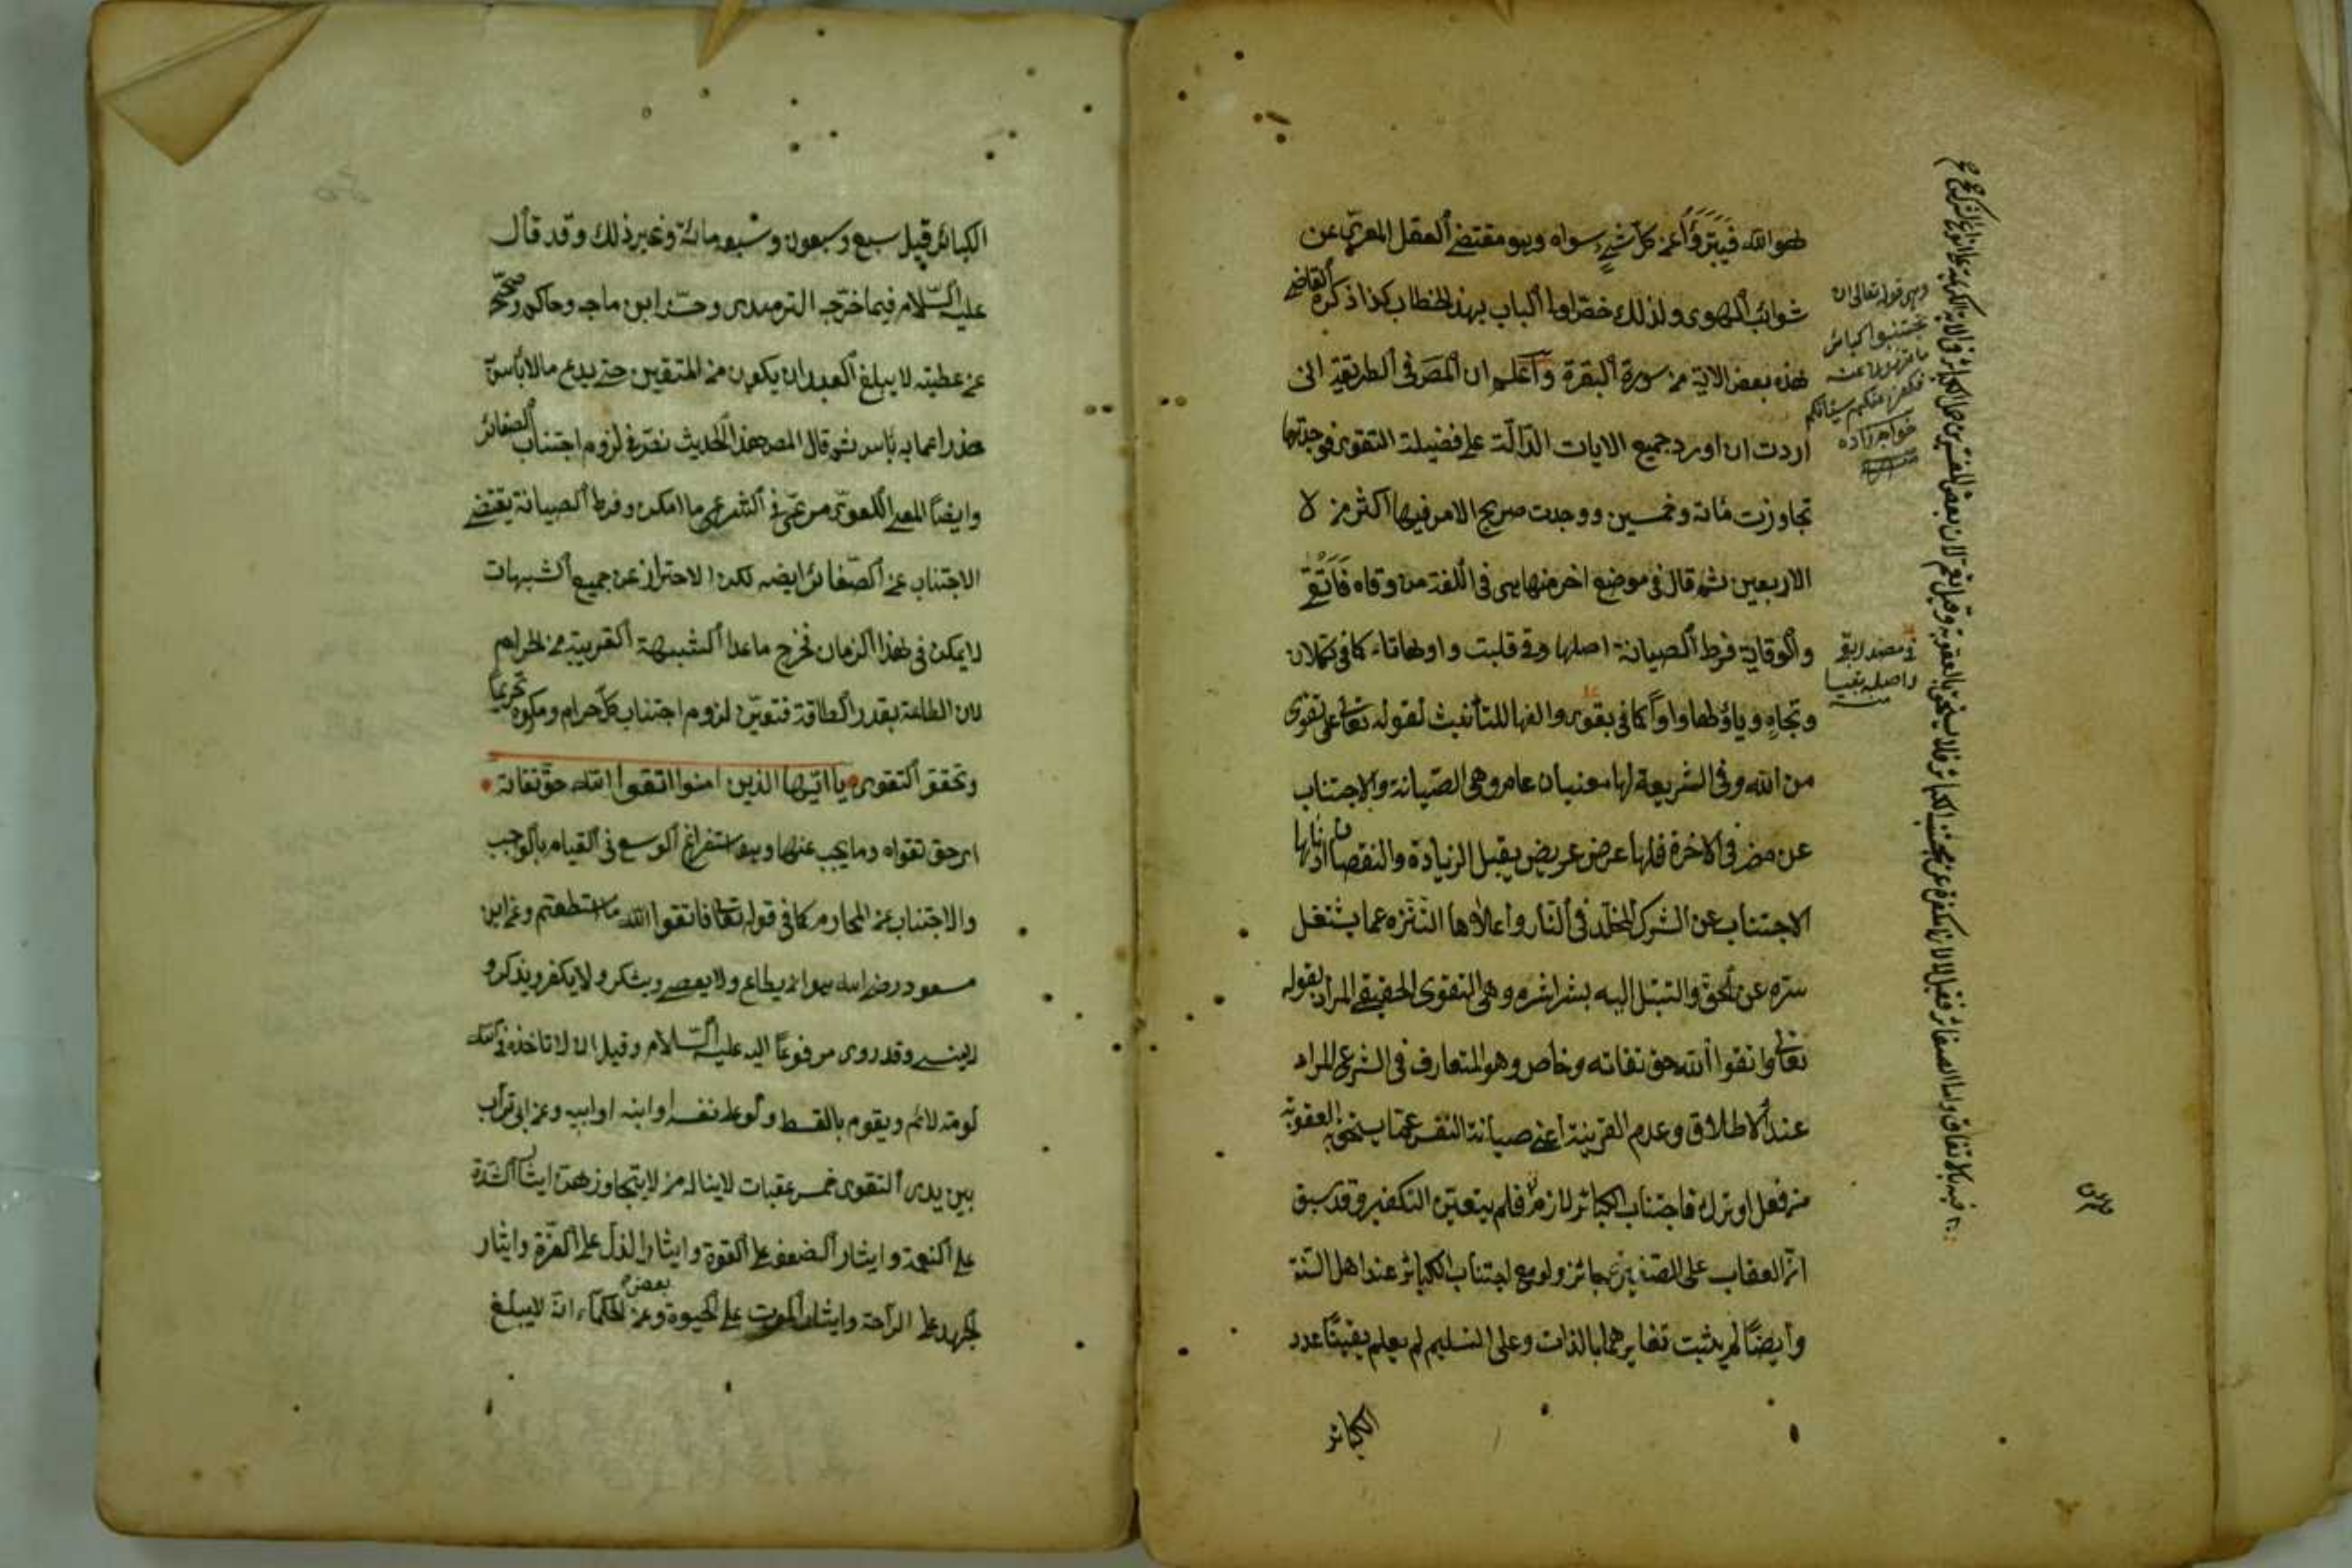 هو الله فيتبرّؤا عن كلّ شيءٍ سواه وهو مقتضى العقل المعرّى عن
شوائب الهوى ولذلك خصّ اولوا الباب بهذ الخطاب كذا ذكره القاضى
هذه بعض الاية من سورة البقرة وآعلم ان المص فى الطريقة انى
اردت ان اورد جميع الايات الدّالّة على فضيلة التقوى فوجدتها
تجاوزت مائة وخمسين ووجدت صريح الامر فيها اكثر من لا
الاربعين ثم قال فى موضع اخر منها هى فى اللغة من وقاه فَاتَّقَى
والوقاية فرط الصيانة اصلها وقى قلبت واوها تاء كما فى تكلان
وتجاهٍ وياؤها واواً كما فى بقوى والفها للتأنيث لقوله تعالى على تقوى
من الله وفى الشريعة لها معنيان عام وهى الصّيانة والاجتناب
عن مضر فى الاخرة فلها عرض عريض يقبل الزيادة والنقصان ادناها
الاجتناب عن الشرك المخلّد فى النّار واعلاها التنزه عما يشغل
سرّه عن الحقّ والتبتل اليه بشراشره وهى التقوى الحقيقى المراد بقوله
تعالى واتقوا الله حق تقاته وخاص وهو المتعارف فى الشرع المراد
عند الاطلاق وعدم القرينة اعنى صيانة النفس عمّا يستحق به العقوبة
من فعل او ترك فاجتناب الكبائر لازم فلم يتعيّن التكفير وقد سبق
انّ العقاب على الصغيرة جائز ولو مع اجتناب الكبائر عند اهل السّنة
وايضاً لم يثبت تغايرهما بالذات وعلى التسليم لم يعلم يقيناً عدد
الكبائر
وهى قوله تعالى ان
تجتنبوا كبائر
ما تنهون عنه
نكفر عنكم سيئاتكم
خواجه زاده
مصدر اتقى
واصله تقيا
الكبائر قيل سبع وسبعون وسبعمائة وغير ذلك وقد قال
عليه السّلام فيما خرّجه الترمذى وحسّنه ابن ماجه وحاكم وصحّحه
عن عطية لا يبلغ العبد ان يكون من المتقين حتى يدع ما لا بأس به
حذرا عما به بأس ثم قال المص هذا الحديث نصّ فى لزوم اجتناب الصغائر
وايضاً المعنى اللغوىّ مرعىّ فى الشرعى ما امكن وفرط الصيانة يقتضى
الاجتناب عن الصّغائر ايضه لكن الاحتراز عن جميع الشبهات
لا يمكن فى هذا الزمان فخرج ما عدا الشبهة القريبة من الحرام
لان الطاعة بقدر الطاقة فتعيّن لزوم اجتناب كلّ حرام ومكروه تحريماً
وتحقق التقوى يا ايّها الذين امنوا اتقوا الله حق تقاته
اى حق تقواه وما يجب عنها وهو استفراغ الوسع فى القيام بالواجب
والاجتناب عن المحارم كما فى قوله تعالى فاتقوا الله ما استطعتم وعن ابن
مسعود رضى الله هو انه يطاع ولا يعصى ويشكر ولا يكفر ويذكر و
لا ينسى وقد روى مرفوعاً اليه عليه السّلام وقيل ان لا تأخذه فى الله
لومة لائم ويقوم بالقسط ولو على نفسه او ابنه او ابيه وعن ابى تراب
بين يدى التقوى خمس عقبات لا يناله من لا يتجاوزهن ايثار الشدّة
على النعمة وايثار الضعف على القوة وايثار الذل على العزّة وايثار
الجهد على الراحة وايثار الموت على الحيوة وعن بعض الحكماء انّه لا يبلغ